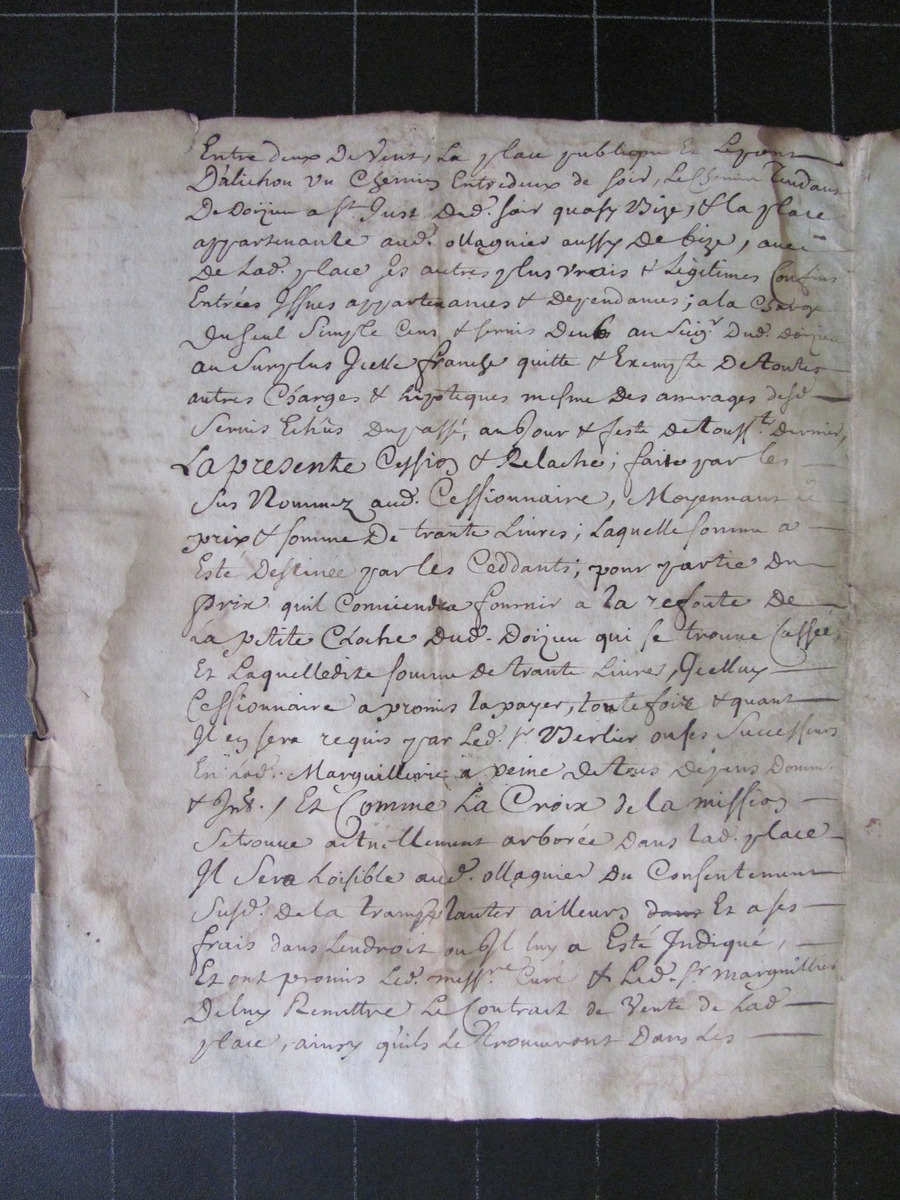 Entre deux de Vent, La place publique Et
Dalichou un Chemin Entredeux de soir, Le Chemin Tendant
De Doizieu a St. Just Dud. soir quasy Bize, & la place
appartenante aud. ollagnier aussy De bize, avec
De Lad. place ses autres plus vrais & Légitimes Confins
Entrées Issues appartenances & Dependances; a la Charge
Du seul Simple Cens & servis Deub au Seigr. Dud. Doizieu
au Surplus Jcelle franche quitte & Exempte De toutes
autres Charges & hipoteques mesme Des arrerages desd.
Servis Echûs Du passé, au Jour & feste de Tousst. Dernier,
La presente Cession & Relache; faite par les
Sus Nommez aud. Cessionnaire, Moyennant Le
prix & somme De trante Livres; Laquelle somme a
Esté Destinee par les Ceddants; pour partie Du
prix quil Conviendra fournir a la refonte De
La petite Cloche Dud. Doizieu qui se trouve Cassée,
Et Laquelledite somme de trante Livres, Jcelluy
Cessionnaire a promis la payer, toutefoix & quant
Il en sera requis par Led. Sr. Verlier ou ses Successeurs
En Lad. Marguillerie a peine de tous Depens Domm.
& Jnts. / Et Comme La Croix de la mission
Se trouve actuellement arborée Dans lad. place
Il Sera Loisible aud. ollagnier Du Consentement
Susd. De la transplanter ailleurs dans Et a ses
frais dans Lendroit ou Jl luy a Esté Jndiqué,
Et ont promis Led. messre. Curé & Led. Sr. marguillier
De luy Remettre Le Contrait de Vente de Lad.
place, ainsy quils Le trouveront Dans Les